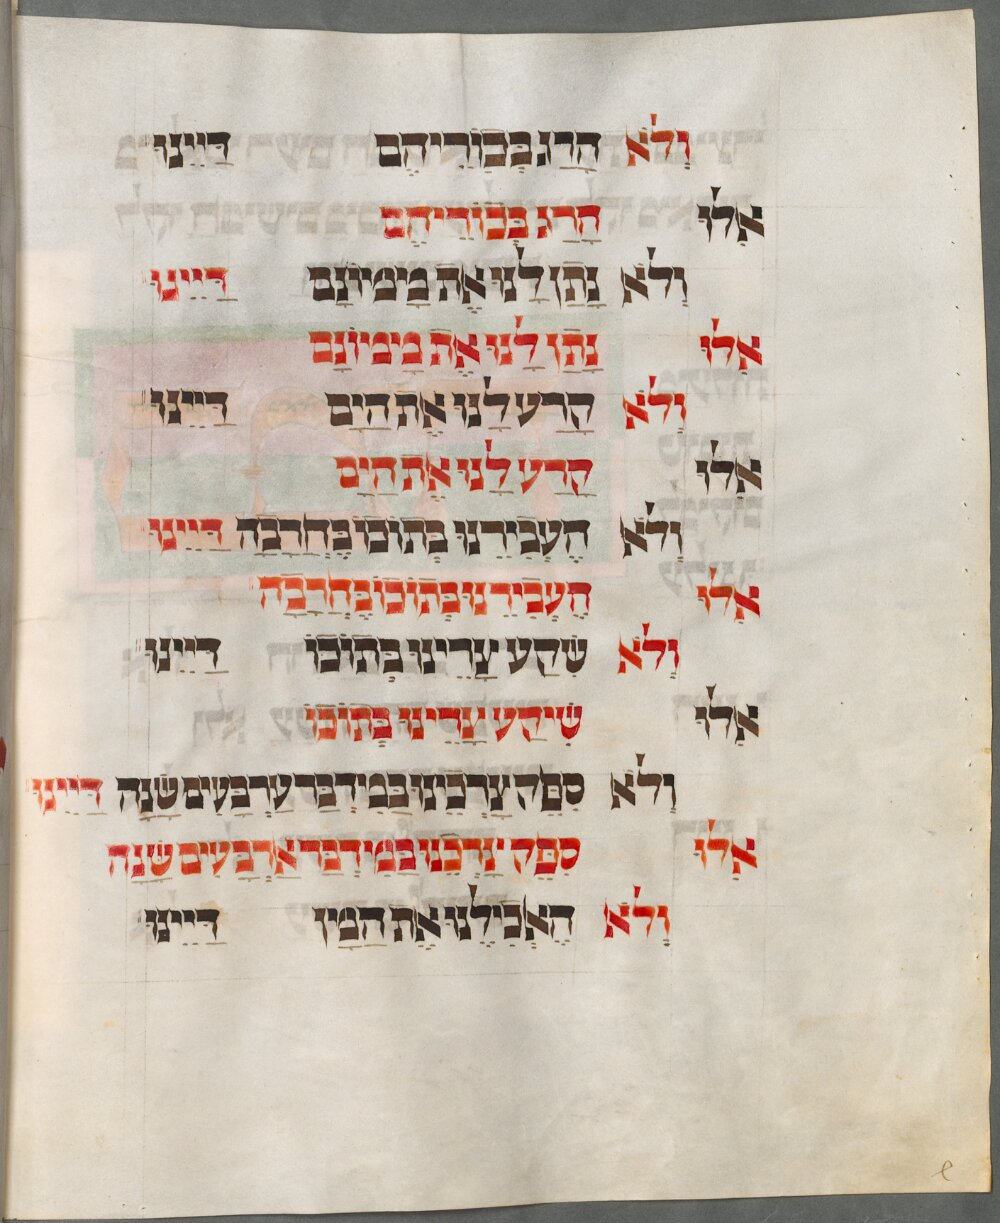 וְלֹא הָרַג בְּכוֹרֵיהֶם דַּיֵּינוּ
אִלּוּ הָרַג בְּכוֹרֵיהֶם
וְלֹא נָתַן לָנוּ אֶת מָמוֹנָם דַּיֵּינוּ
אִלּוּ נָתַן לָנוּ אֶת מָמוֹנָם
וְלֹא קָרַע לָנוּ אֶת הַיָּם דַּיֵּינוּ
אִלּוּ קָרַע לָנוּ אֶת הַיָּם
וְלֹא הֶעֱבִירָנוּ בְּתוֹכוֹ בֶּחָרָבָה דַּיֵּינוּ
אִלּוּ הֶעֱבִירָנוּ בְּתוֹכוֹ בֶּחָרָבָה
וְלֹא שִׁקַּע צָרֵינוּ בְּתוֹכוֹ דַּיֵּינוּ
אִלּוּ שִׁיקַּע צָרֵינוּ בְּתוֹכוֹ
וְלֹא סִפֵּק צָרְכֵינוּ בַּמִּידְבָּר אַרְבָּעִים שָׁנָה דַּיֵּינוּ
אִלּוּ סִפֵּק צָרְכֵנוּ בַּמִּידְבָּר אַרְבָּעִים שָׁנָה
וְלֹא הֶאֱכִילָנוּ אֶת הַמָּן דַּיֵּינוּ